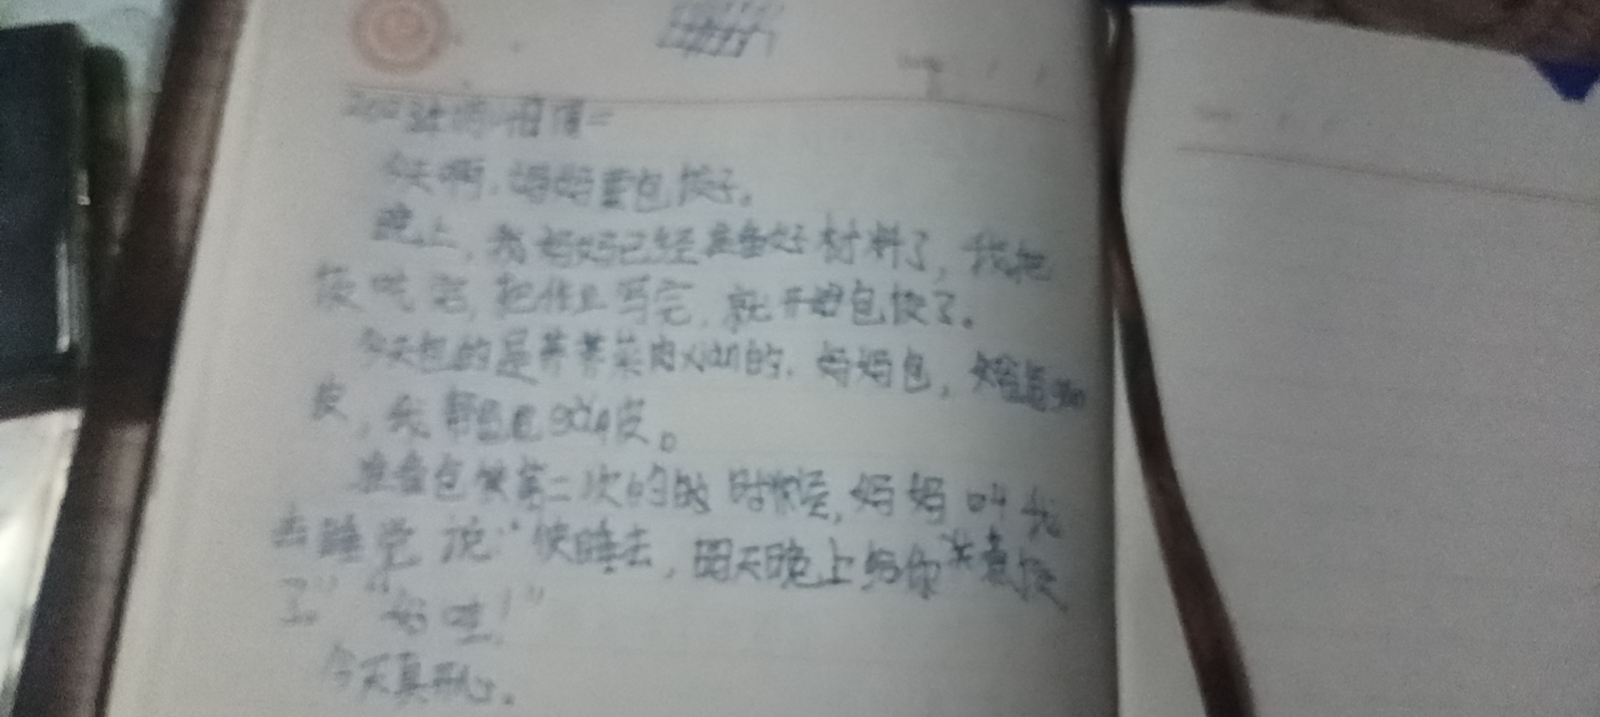 今天啊，妈妈要包饺子。
晚上，我妈妈已经准备好材料了，我把
饭吃完，把作业写完，就开始包饺了。
今天包的是荠荠菜肉xian的，妈妈包，
皮，我帮 皮。
准备包 第二次的 时候，妈妈叫我
去睡觉 说：“快睡去，明天晚上给你 煮饺
了” “好哇！”
今天真开心。